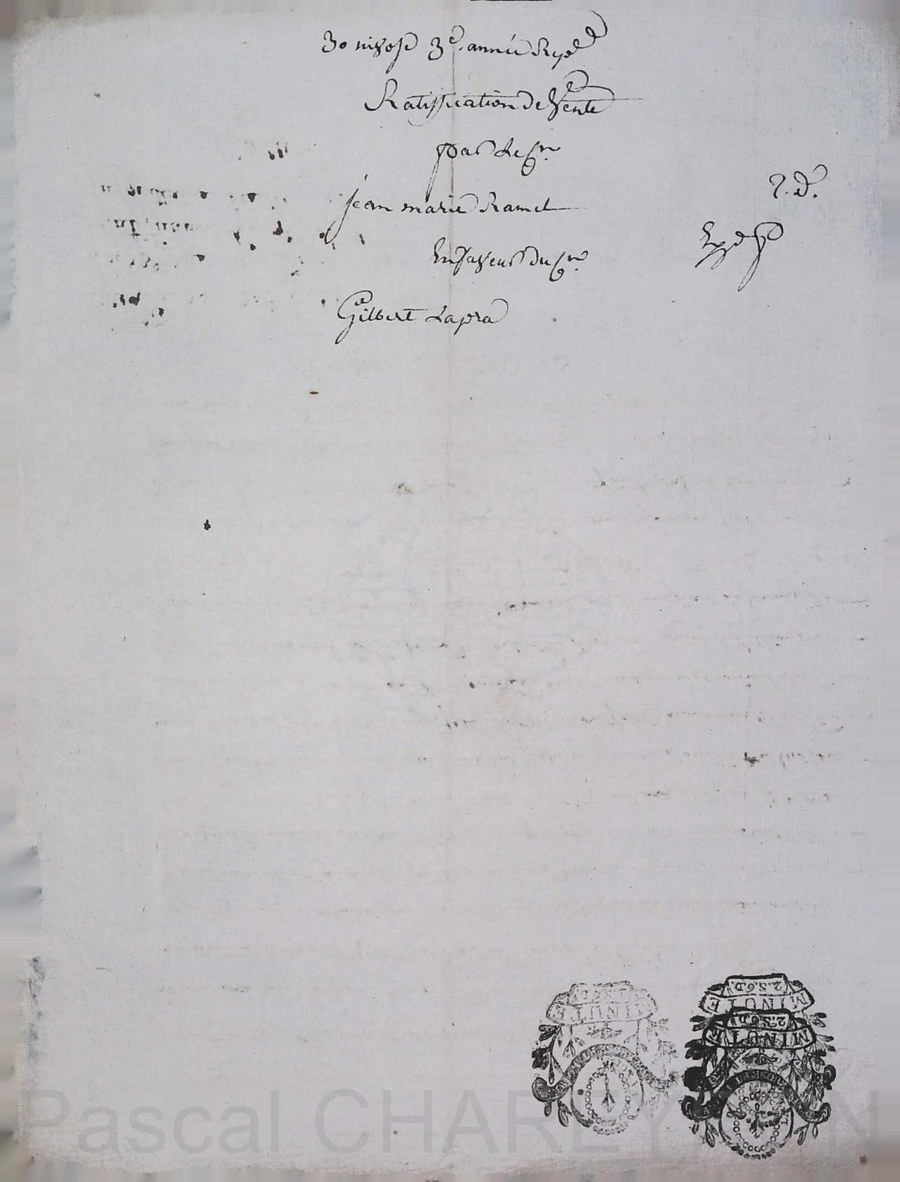 30 nivose 3e. année Repe
Ratiffication de Vente
par Le Cn
jean marie Ramel
En faveur du Cn.
Gilbert Lapra
2. d.
MINUTE
2.S.6.D.
MINUTE
2.S.6.D.
MINUTE
Pascal CHAREY